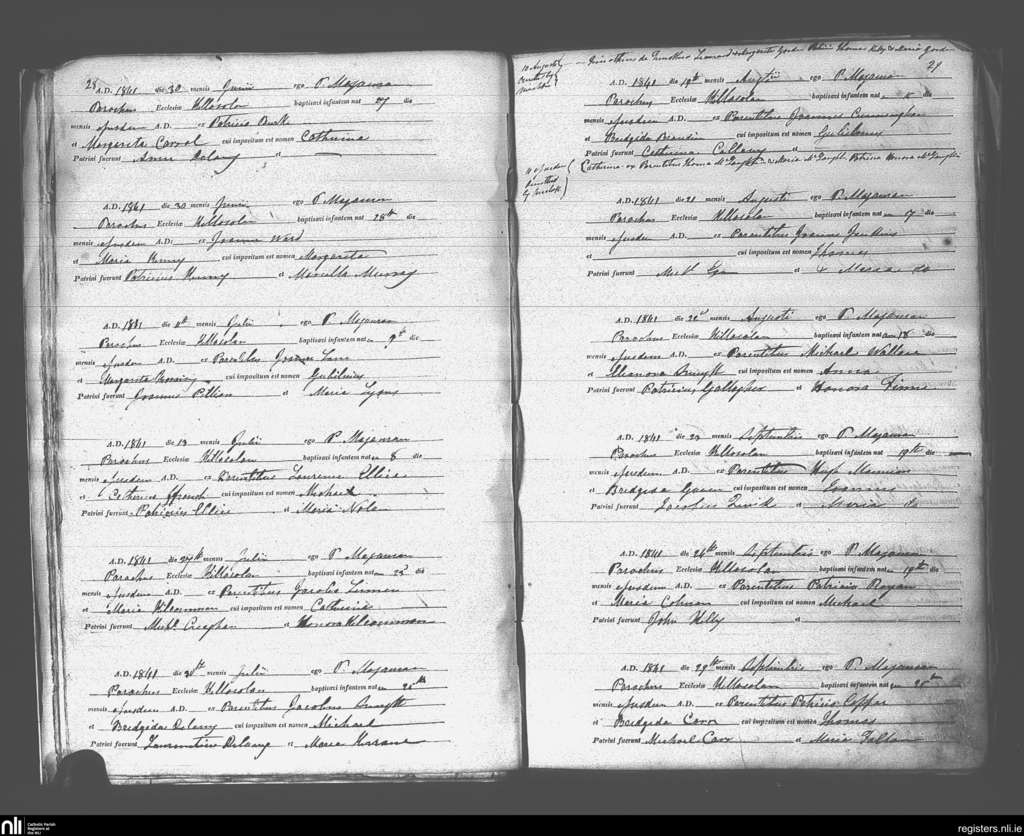 28 A.D. 1841 die 30 mensis Junii ego P. Maganran
Parochus Ecclesiæ Killosolan baptisavi infantem nat 27 die
mensis ejusdem A.D. ex Patricio Burk
et Margarita Carrol cui impositum est nomen Catherina
Patrini fuerunt Anne Delany et
A.D. 1841 die 30 mensis Junii ego P. Maganran
Parochus Ecclesiæ Killosolan baptisavi infantem nat 28th die
mensis ejusdem A.D. ex Joanne Ward
et Maria Kenny cui impositum est nomen Margarita
Patrini fuerunt Patricius Kenny et Marcella Murray
A.D. 1841 die 11th mensis Julii ego P. Maganran
Parochus Ecclesiæ Killosolan baptisavi infantem nat 9th die
mensis ejusdem A.D. ex Parentibus Joannes
et Margarita cui impositum est nomen Gulielmus
Patrini fuerunt Joannes et Maria Lyons
A.D. 1841 die 13 mensis Julii ego P. Maganran
Parochus Ecclesiæ Killosolan baptisavi infantem nat 8 die
mensis ejusdem A.D. ex Parentibus Laurence Ellis
et Catherina ffrench cui impositum est nomen Michael
Patrini fuerunt Patricius Ellis et Maria Nolan
A.D. 1841 die 27th mensis Julii ego P. Maganran
Parochus Ecclesiæ Killosolan baptisavi infantem nat 22d die
mensis ejusdem A.D. ex Parentibus Jacobus
et Maria Kilcommon cui impositum est nomen Catherina
Patrini fuerunt Michl. Creaghan et Honora Kilcommon
A.D. 1841 die 30th mensis Julii ego P. Maganran
Parochus Ecclesiæ Killosolan baptisavi infantem nat 25th
mensis ejusdem A.D. ex Parentibus Jacobus Smyth
et Bredgida Delany cui impositum est nomen Michael
Patrini fuerunt Laurentius Delany et Maria
10 Augusti de Timotheo Leonard & Margarita Gordon Patrini Thomas Kelly & Maria Gordon
29
A.D. 1841 die 19th mensis Augusti ego P. Maganran
Parochus Ecclesiæ Killosolan baptisavi infantem nat die
mensis ejusdem A.D. ex Parentibus Joannes Cunningham
et Bredgida cui impositum est nomen Gulielmus
Patrini fuerunt Catherina et
Catherina ex Parentibus Thomas & Maria Patrina Honora
A.D. 1841 die 21 mensis Augusti ego P. Maganran
Parochus Ecclesiæ Killosolan baptisavi infantem nat 17 die
mensis ejusdem A.D. ex Parentibus Joanne
et cui impositum est nomen Thomas
Patrini fuerunt Michl. et & Maria do
A.D. 1841 die 22d mensis Augusti ego P. Maganran
Parochus Ecclesiæ Killosolan baptisavi infantem nat 18 die
mensis ejusdem A.D. ex Parentibus Michael Wallace
et Elleanora Smyth cui impositum est nomen Anna
Patrini fuerunt Patricius Gallagher et Honora
A.D. 1841 die 23 mensis Septembris ego P. Maganran
Parochus Ecclesiæ Killosolan baptisavi infantem nat 19th die
mensis ejusdem A.D. ex Parentibus Hugh Mannion
et Bredgida cui impositum est nomen Joannes
Patrini fuerunt Jacobus et Maria do
A.D. 1841 die 26th mensis Septembris ego P. Maganran
Parochus Ecclesiæ Killosolan baptisavi infantem nat 19th die
mensis ejusdem A.D. ex Parentibus Patricio
et Maria cui impositum est nomen Michael
Patrini fuerunt John Kelly et
A.D. 1841 die 29th mensis Septembris ego P. Maganran
Parochus Ecclesiæ Killosolan baptisavi infantem nat 25th
mensis ejusdem A.D. ex Parentibus Patricio
et Bredgida Carr cui impositum est nomen Thomas
Patrini fuerunt Michael Carr et Maria Fallon
nli Catholic Parish
Registers at
the NLI
registers.nli.ie